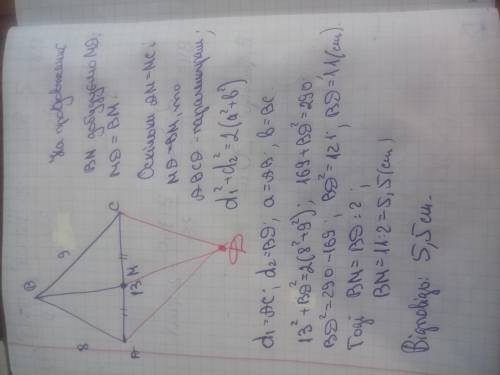 B
8
9
A
13
M
C
D
На продовженні
BM добудуємо MD;
MD = BM;
Оскільки AM=MC і
MD=BM, то
ABCD - паралелограм;
d₁²+d₂²=2(a²+b²)
d₁=AC; d₂=BD; a=AB; b=BC
13²+BD²=2(8²+9²); 169+BD²=290;
BD²=290-169; BD²=121; BD=11(cm);
Тоді BM=BD:2;
BM=11:2=5,5(cm)
Відповідь: 5,5 cm.